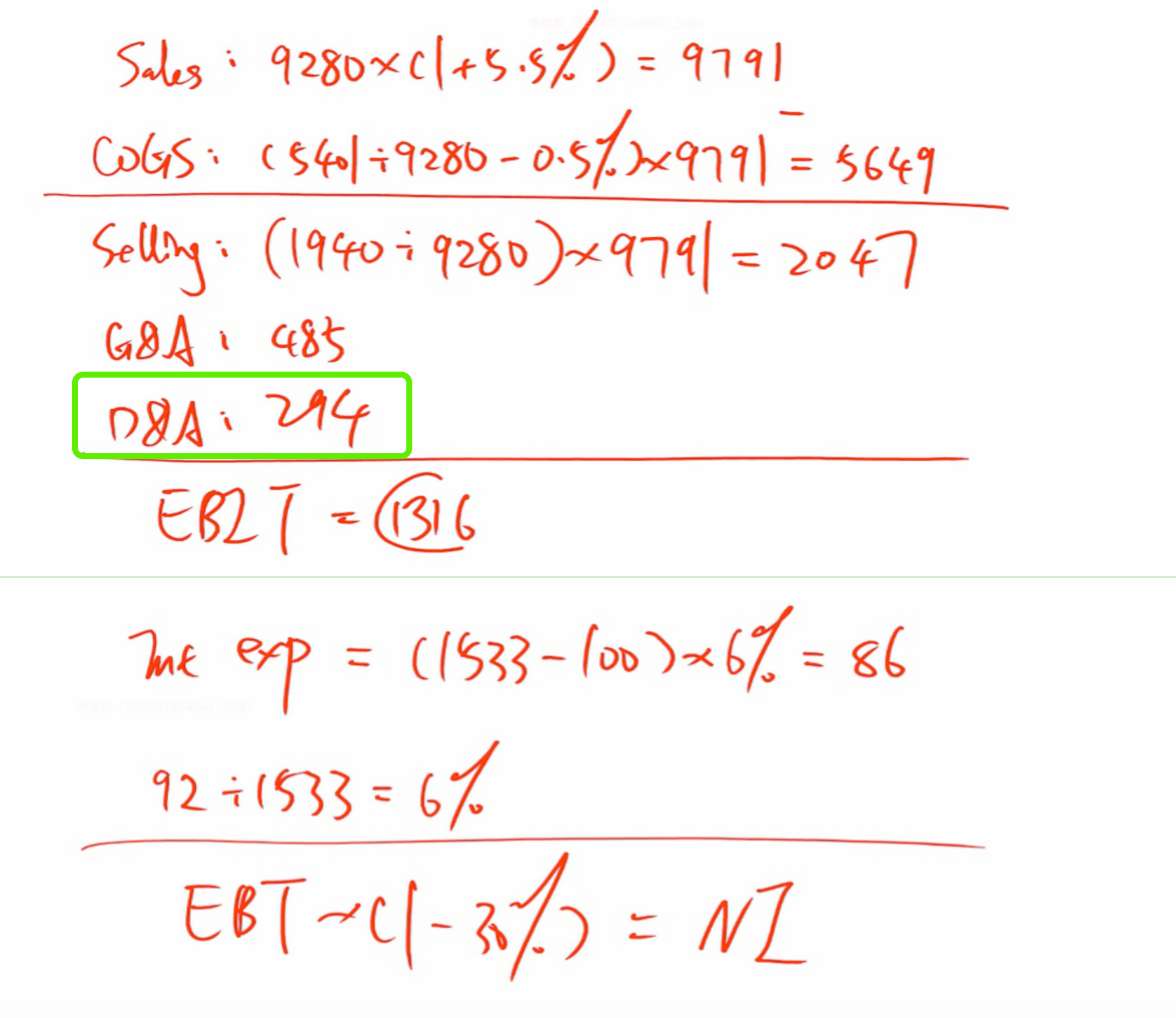 Sales: 9280×(1+5.5%) = 9791
COGS: (5401÷9280-0.5%)×9791 = 5649
Selling: (1940÷9280)×9791 = 2047
G&A: 485
D&A: 294
EBIT = 1316
Int exp = (1533-100)×6% = 86
92÷1533 = 6%
EBT×(1-30%) = NI